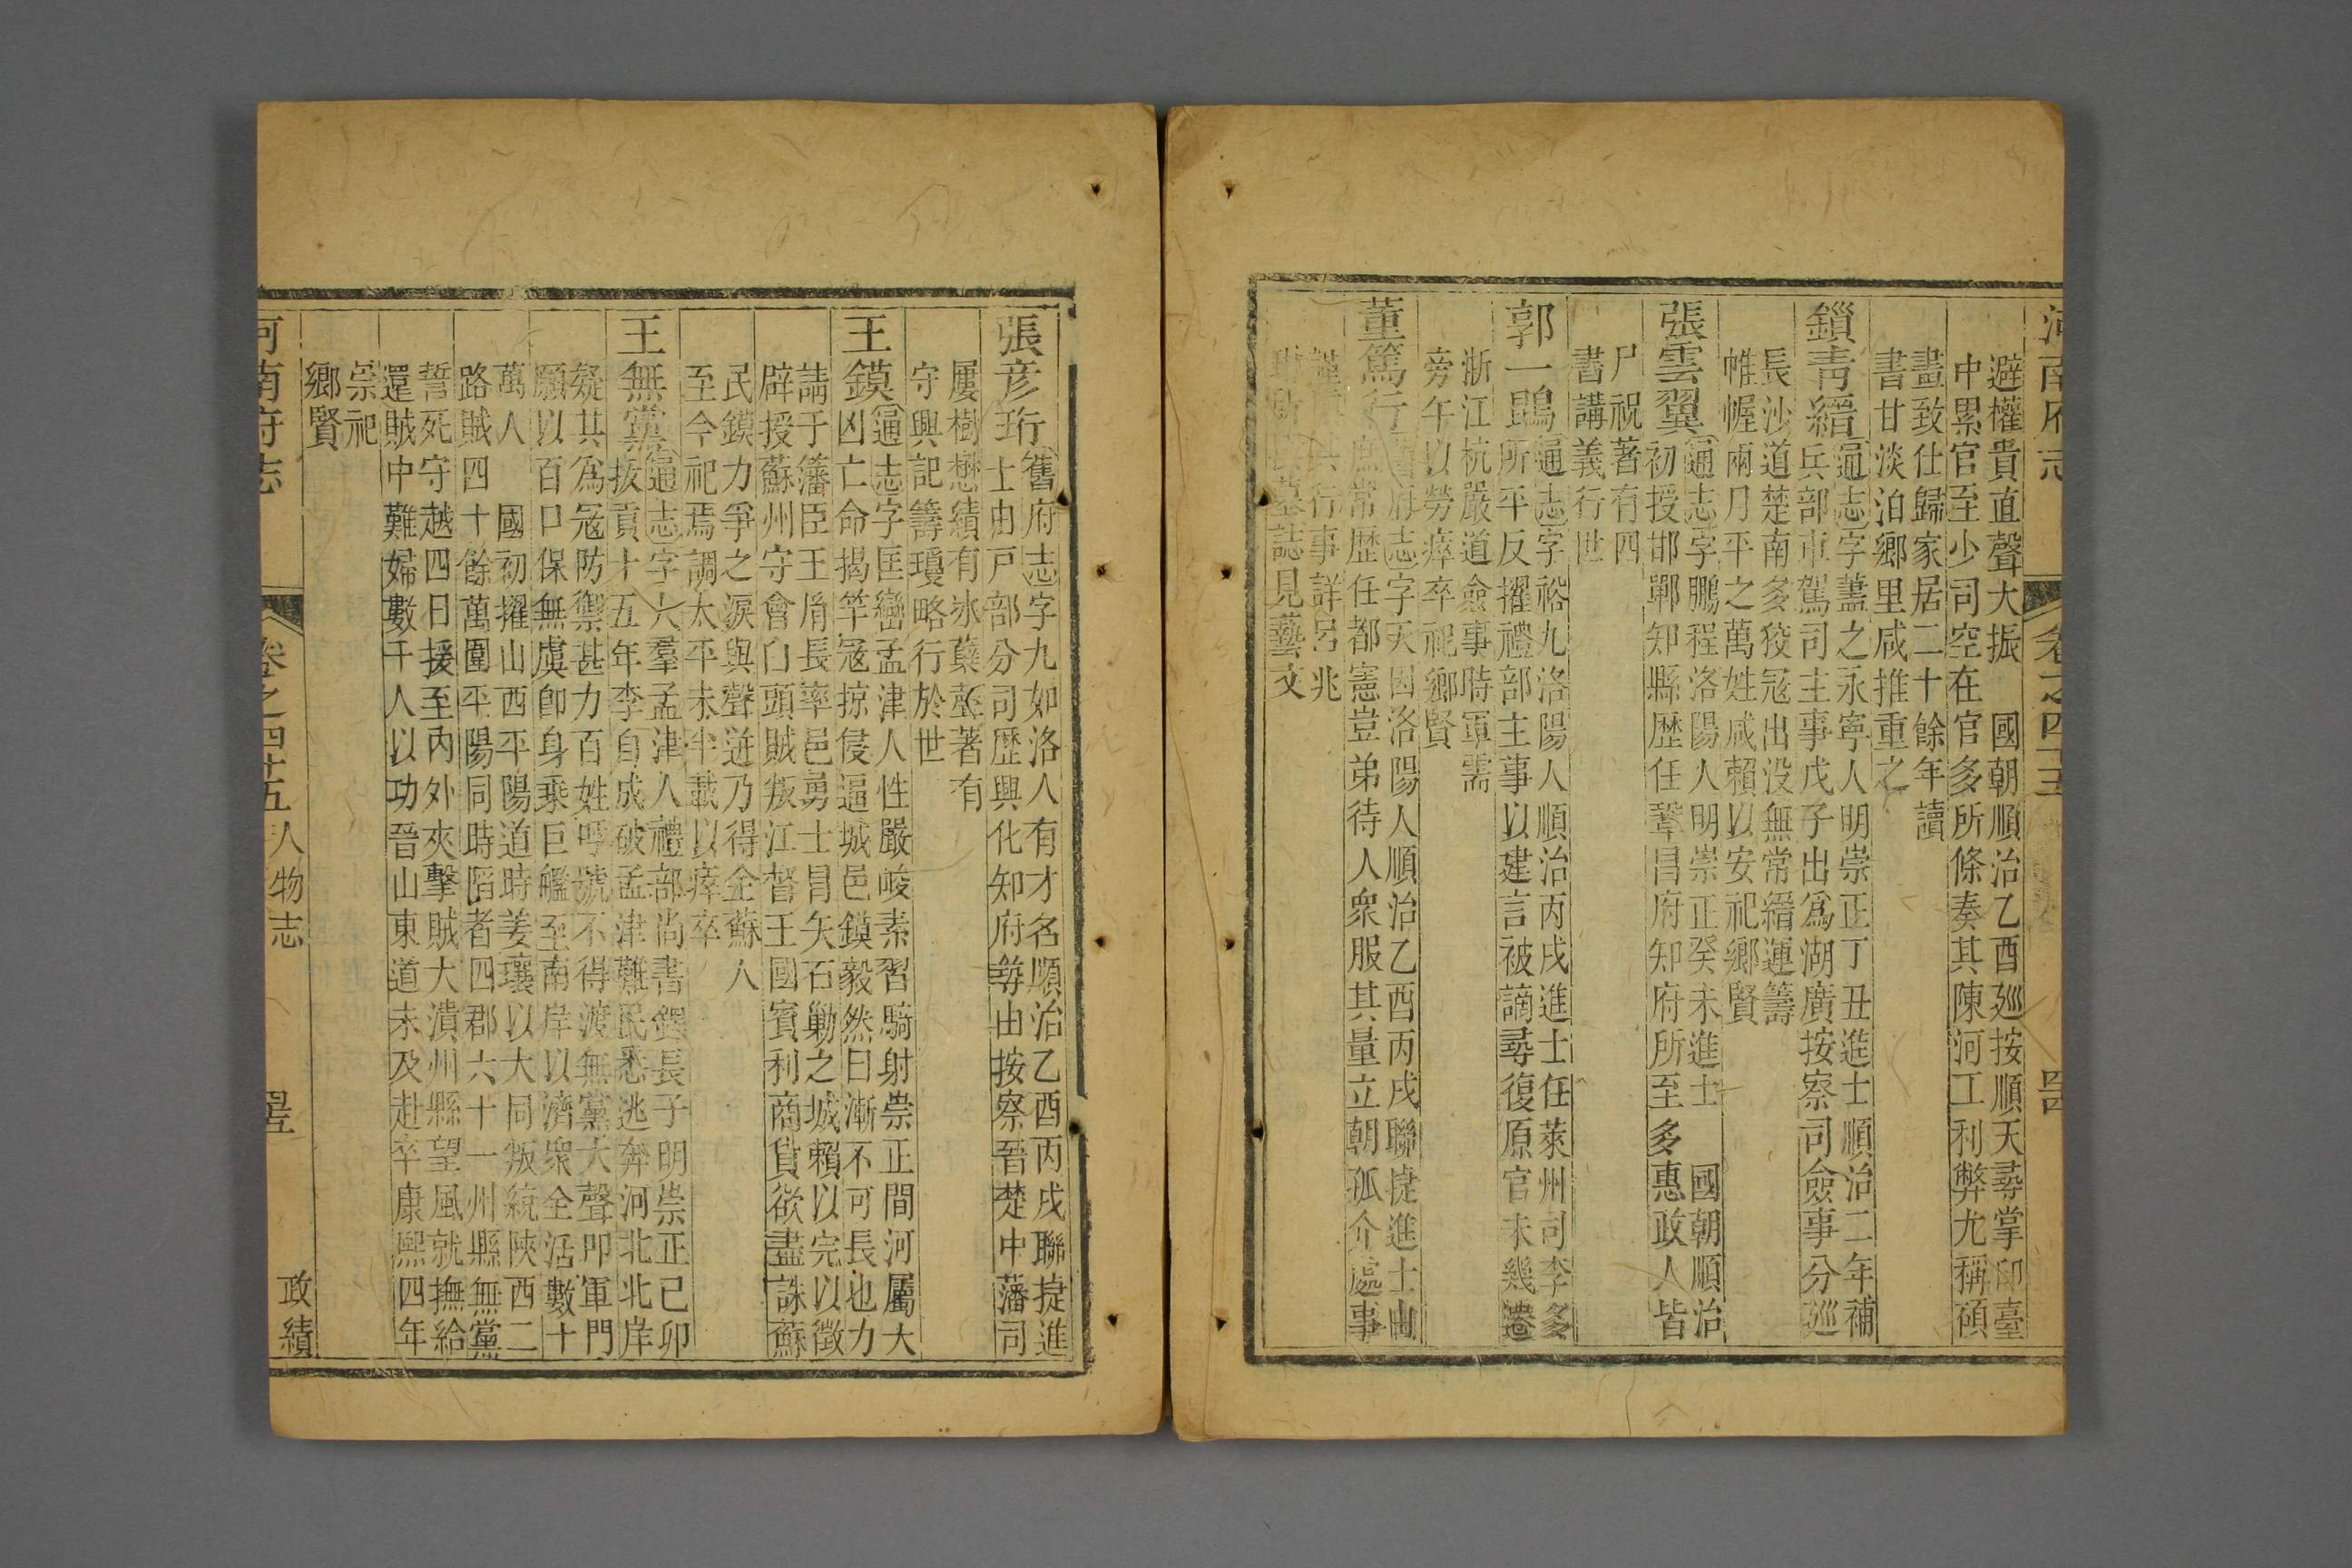 河南府志
卷之四十五
避權貴直聲大振　國朝順治乙酉廵按順天尋掌印臺
中累官至少司空在官多所條奏其陳河工利弊尤稱碩
畫致仕歸家居二十餘年讀
書甘淡泊鄉里咸推重之
鎖青縉
通志字藎之永寧人明崇正丁丑進士順治二年補
兵部車駕司主事戊子出爲湖廣按察司僉事分廵
長沙道楚南多狡寇出没無常縉運籌
帷幄兩月平之萬姓咸賴以安祀鄉賢
張雲翼
通志字鵬程洛陽人明崇正癸未進士　國朝順治
初授邯鄲知縣歷任鞏昌府知府所至多惠政人皆
尸祝著有四
書講義行世
郭一鶚
通志字裕九洛陽人順治丙戌進士任萊州司李多
所平反擢禮部主事以建言被謫尋復原官未幾遷
浙江杭嚴道僉事時軍需
旁午以勞瘁卒祀鄉賢
董篤行
舊府志字天因洛陽人順治乙酉丙戌聯捷進士由
庶常歷任都憲豈弟待人衆服其量立朝孤介處事
行事詳呂兆
墓誌見藝文
張彦珩
舊府志字九如洛人有才名順治乙酉丙戌聯捷進
士由戸部分司歷興化知府等由按察晋楚中藩司
屢樹懋績有氷蘗堂著有
守興記籌瓊略行於世
王鏌
通志字匡巒孟津人性嚴峻素習騎射崇正間河屬大
凶亡命揭竿寇掠侵逼城邑鏌毅然曰漸不可長也力
請于藩臣王胤長率邑勇士冒矢石勦之城賴以完以徵
辟授蘇州守會白頭賊叛江督王國賓利商貨欲盡誅蘇
民鏌力爭之淚與聲逬乃得全蘇人
至今祀焉調太平未半載以瘁卒
王無黨
通志字六羣孟津人禮部尚書鐸長子明崇正己卯
拔貢十五年李自成破孟津難民悉逃奔河北北岸
疑其爲寇防禦甚力百姓呼號不得渡無黨大聲叩軍門
願以百口保無虞卽身乘巨艦至南岸以濟衆全活數十
萬人　國初擢山西平陽道時姜瓖以大同叛統陜西二
路賊四十餘萬圍平陽同時陷者四郡六十一州縣無黨
誓死守越四日援至内外夾擊賊大潰州縣望風就撫給
還賊中難婦數千人以功晉山東道未及赴卒康熙四年
崇祀
鄉賢
河南府志
卷之四十五
人物志
政績